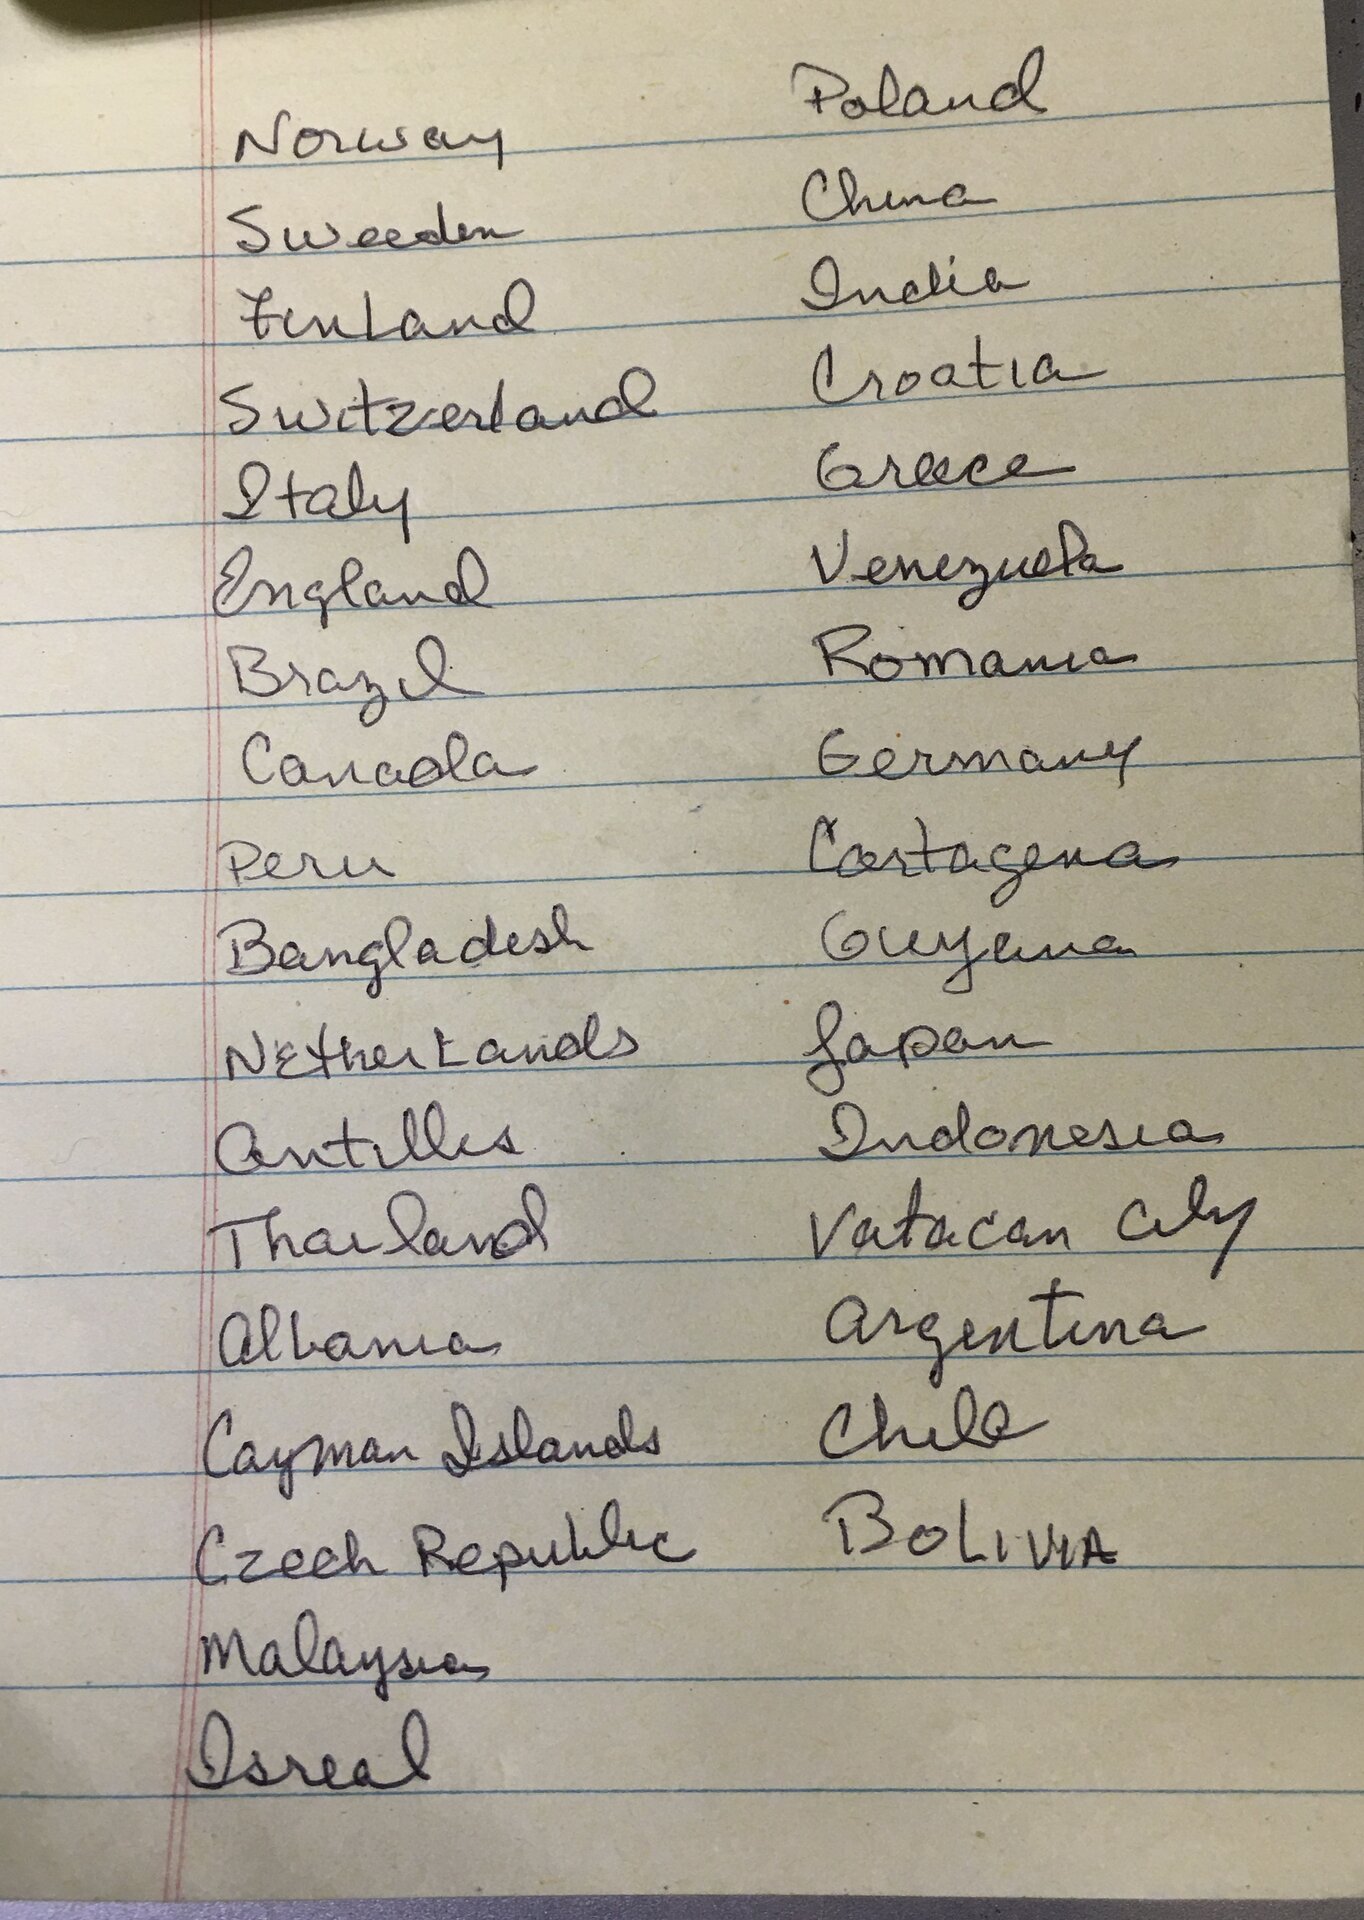 Norway
Sweeden
Finland
Switzerland
Italy
England
Brazil
Canada
Peru
Bangladesh
Netherlands
Antilles
Thailand
Albania
Cayman Islands
Czech Republic
Malaysia
Isreal
Poland
China
India
Croatia
Greece
Venezuela
Romania
Germany
Cartagena
Guyana
Japan
Indonesia
Vatacan City
Argentina
Chile
BOLIVIA